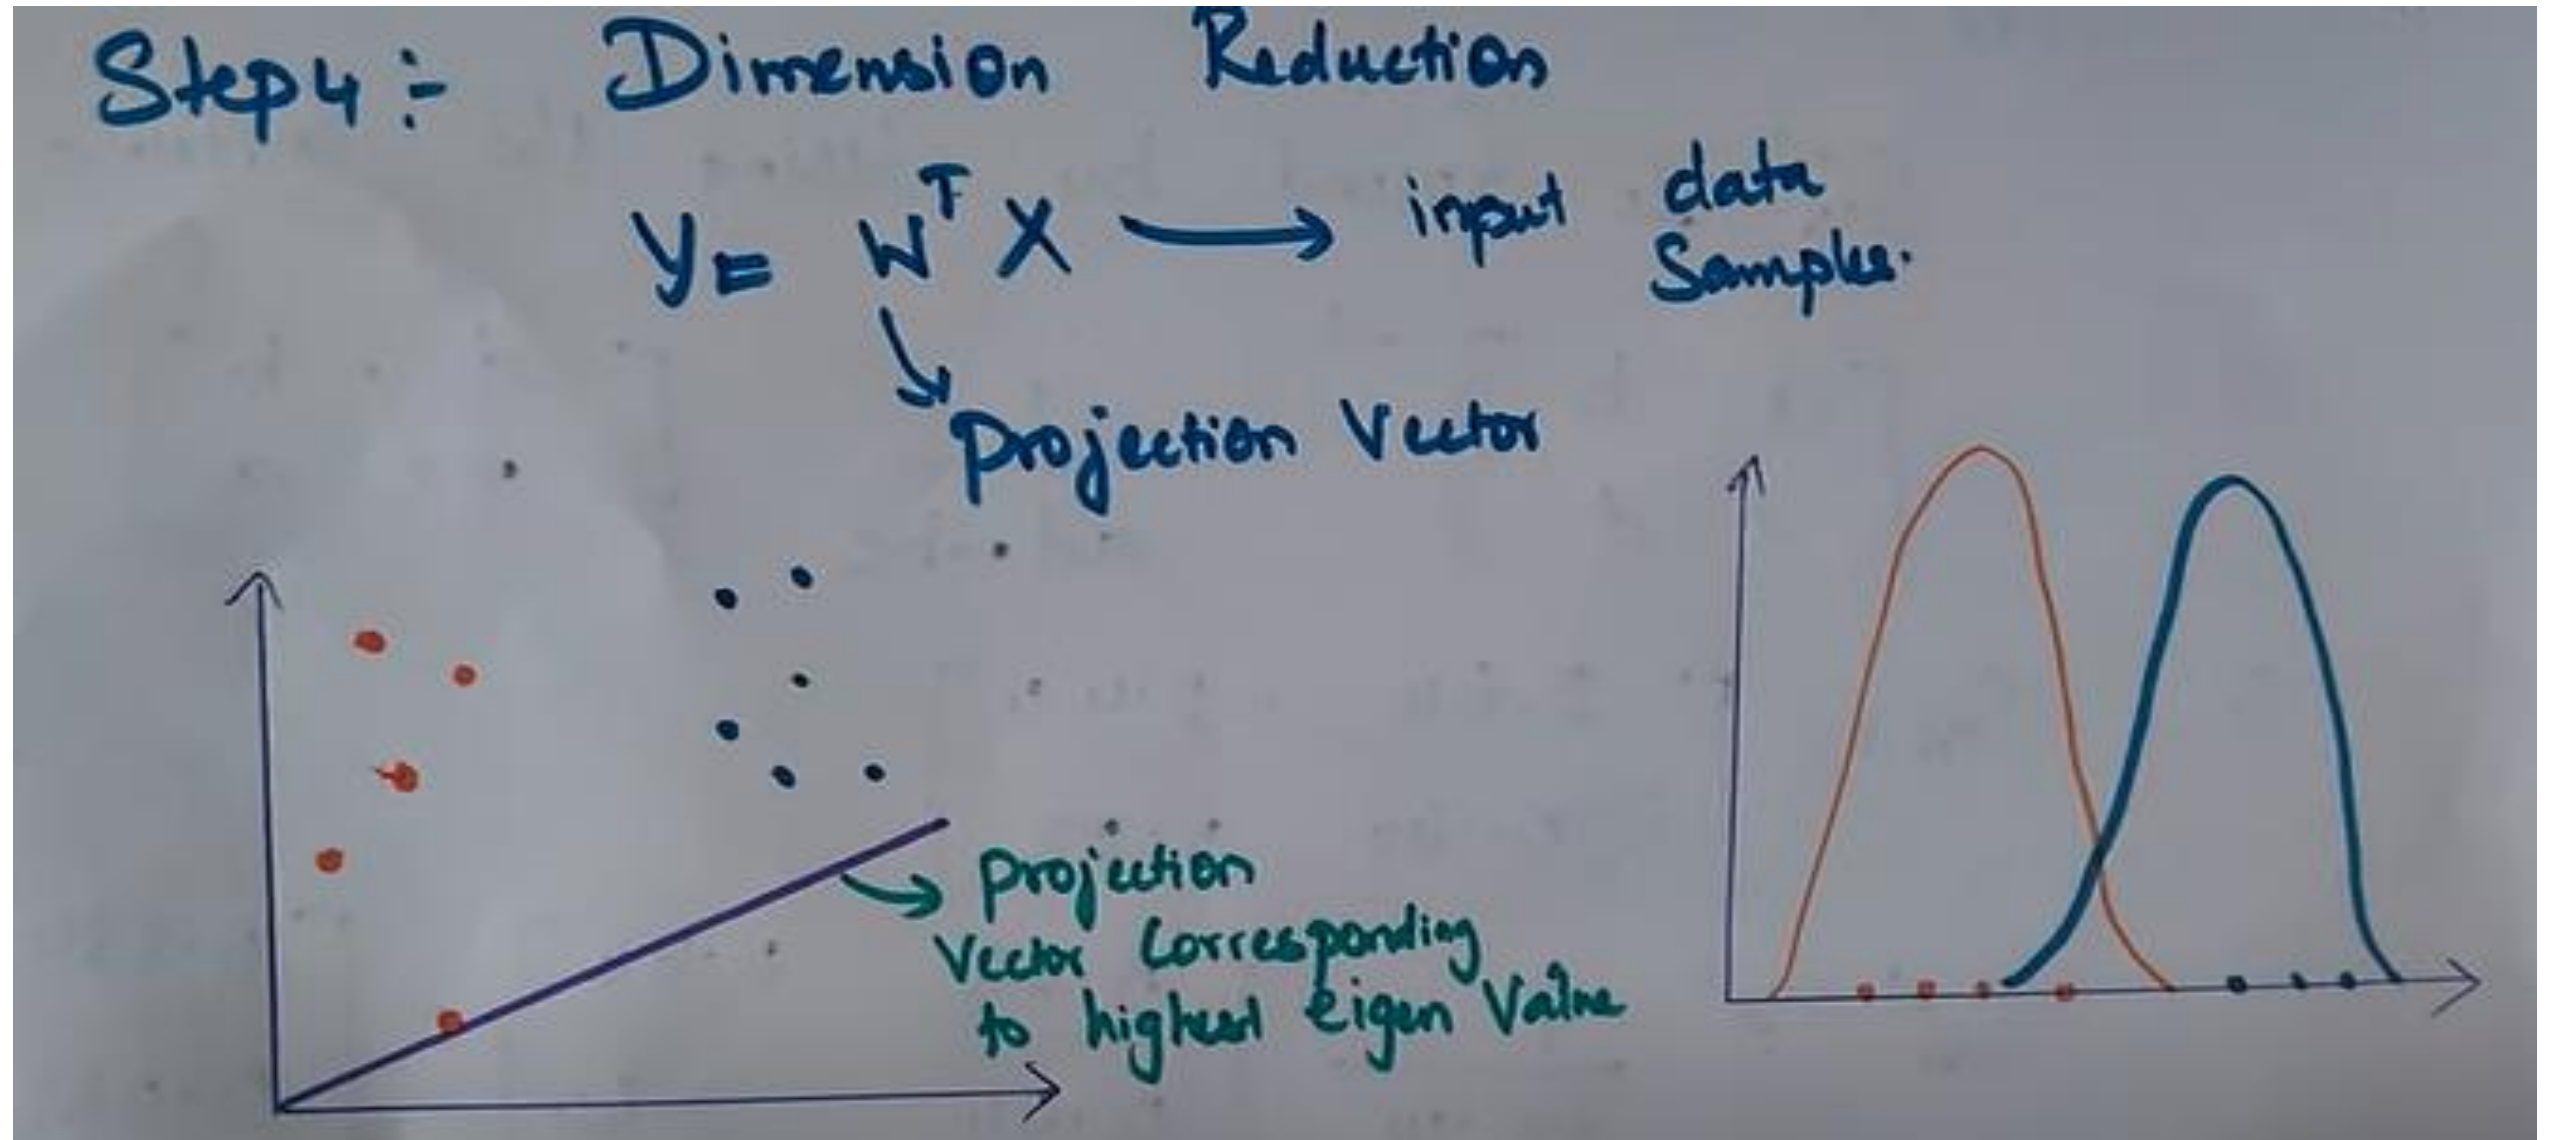 Step 4 :- Dimension Reduction
Y = W^T X → input data
Samples.
Projection Vector
Projection
Vector Corresponding
to highest eigen Value